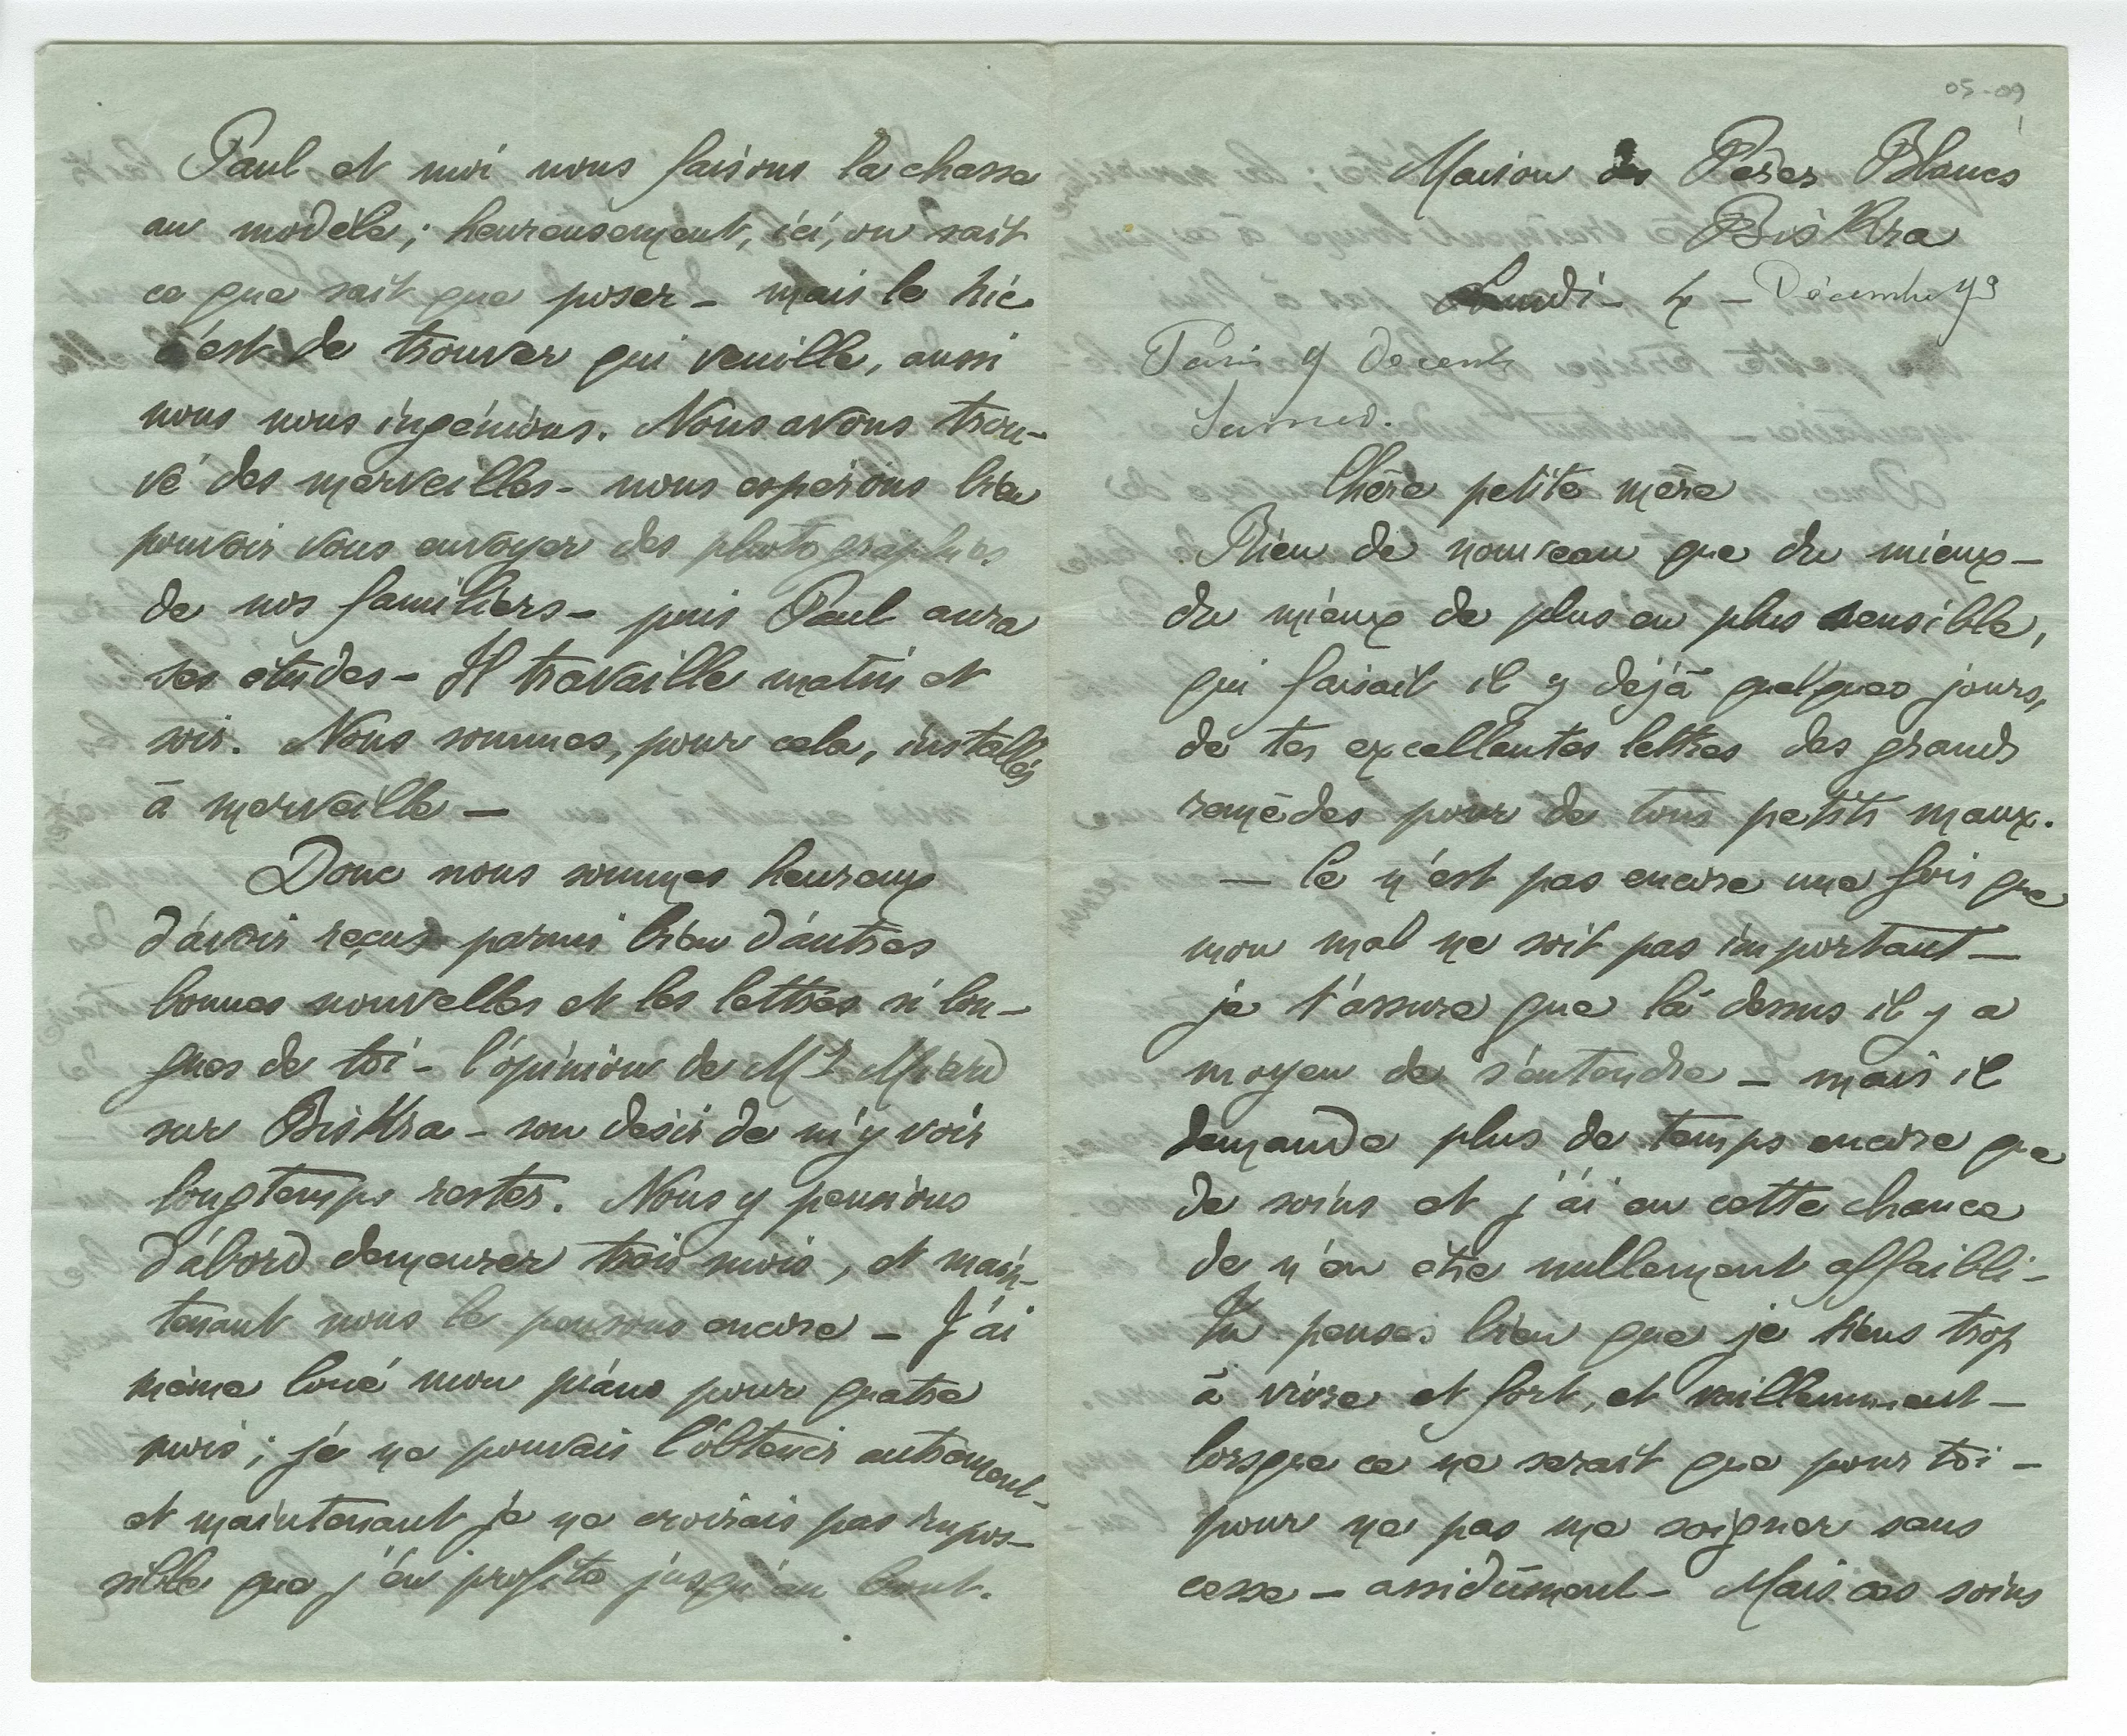 05-09
Maison des Pères Blancs
Biskra
Lundi - 4 - Décembre 93
Paris 9 decemb
Samed.
Chère petite mère
Rien de nouveau que du mieux -
du mieux de plus en plus sensible,
qui faisait il y déjà quelques jours,
de tes excellentes lettres des grands
remèdes pour de tous petits maux.
— Ce n'est pas encore une fois que
mon mal ne soit pas important —
je t'assure que là dessus il y a
moyen de s'entendre — mais il
demande plus de temps encore que
de soins et j'ai eu cette chance
de n'en être nullement affaibli -
Tu penses bien que je tiens trop
à vivre et fort, et vaillemment -
lorsque ce ne serait que pour toi -
pour ne pas me soigner sans
cesse - assidûment - Mais ces soins
Paul et moi nous faisons la chasse
au modèle; heureusement, ici, on sait
ce que sait que poser - mais le hic
c'est de trouver qui veuille, aussi
nous nous ingénions. Nous avons trou-
vé des merveilles - nous espérons bien
pouvoir vous envoyer des photographies
de nos familiers - puis Paul aura
ses études - Il travaille matin et
soir. Nous sommes, pour cela, installés
à merveille —
Donc nous sommes heureux
d'avoir reçus parmi bien d'autres
bonnes nouvelles et les lettres si lon-
gues de toi - l'opinion de Mr
sur Biskra - son désir de m'y voir
longtemps rester. Nous y pensions
d'abord demeurer trois mois, et main-
tenant nous le pensons encore - J'ai
même loué mon piano pour quatre
mois; je ne pouvais l'obtenir autrement -
et maintenant je ne croirais pas impos-
sible que j'en profite jusqu'au bout.